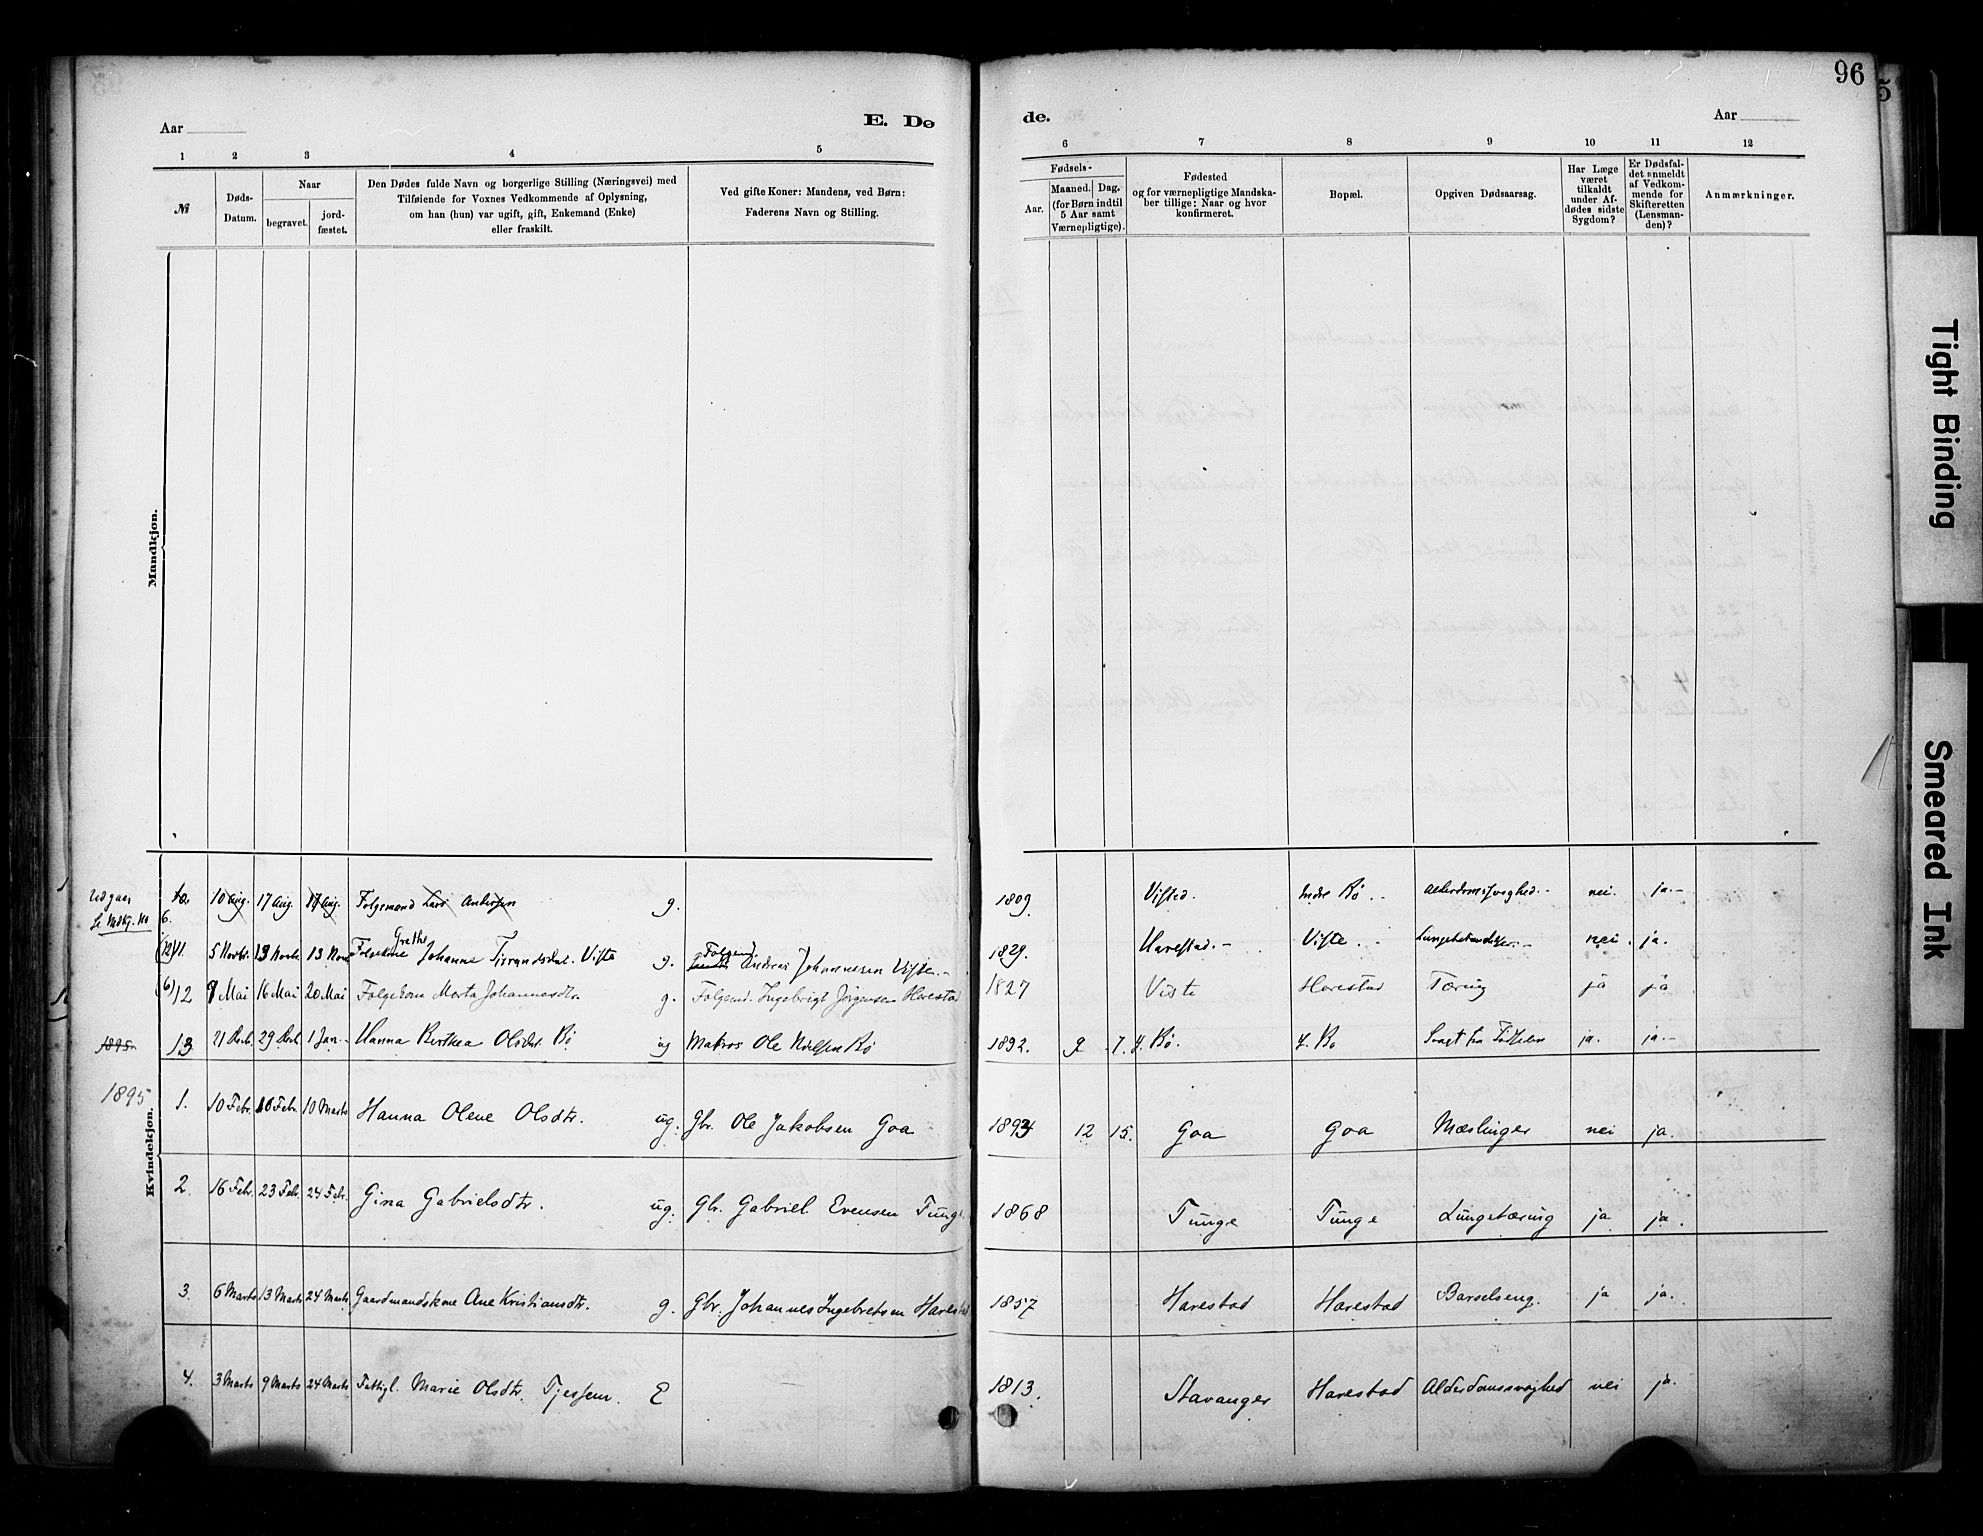 96
5
Aar
E. Dø
de.
Aar
1 2 3 4 5 6 7 8 9 10 11 12
№
Døds-
Datum.
Naar
begravet.
jord-
fæstet.
Den Dødes fulde Navn og borgerlige Stilling (Næringsvei) med
Tilføiende for Voxnes Vedkommende af Oplysning,
om han (hun) var ugift, gift, Enkemand (Enke)
eller fraskilt.
Ved gifte Koner: Mandens, ved Børn:
Faderens Navn og Stilling.
Fødsels-
Aar.
Maaned. Dag.
(for Børn indtil
5 Aar samt
Værnepligtige).
Fødested
og for værnepligtige Mandska-
ber tillige: Naar og hvor
konfirmeret.
Bopæl.
Opgiven Dødsaarsag.
Har Læge
været
tilkaldt
under Af-
dødes sidste
Sygdom?
Er Dødsfal-
det anmeldt
af Vedkom-
mende for
Skifteretten
(Lensman-
den)?
Anmærkninger.
Mandkjøn.
Kvindekjøn.
Udgaar
10 Aug. 17 Aug. 17 Aug. Folgemand Lars g. 1809 Visted. Indre Bø Alderdomssvaghed nei. ja.
6.
Grethe
11. 5 Novbr. 13 Novbr. 13 Novb. Folgekone Johanne Viste g. Folgemd. Andreas Johannesen Viste. 1829. Harestad. Viste. nei. ja.
(6) 12 9 Mai 16 Mai 20 Mai Folgekone Marta Johannesdtr. g. Folgemd. Ingebrigt Jørgensen Harestad 1827 Viste Harestad Tæring ja ja
1895 13 21 Decb. 29 Decb. 1 Jan. Hanna Berthea Olsdtr. Bø ug Matros Ole Nielsen Bø 1892. 9 7. Y. Bø. Y. Bø Svagt fra Fødselen ja. ja.
1895
1. 10 Febr. 16 Febr. 10 Marts Hanna Olene Olsdtr. ug. Gbr. Ole Jakobsen Goa 1894 12 15. Goa Goa Mæslinger nei ja.
2. 16 Febr. 23 Febr. 24 Febr. Gina Gabrielsdtr. ug. Gbr. Gabriel Evensen Tunge 1868 Tunge Tunge Lungetæring ja ja.
3. 6 Marts 13 Marts 24 Marts Gaardmandskone Ane Kristiansdtr. g. Gbr. Johannes Ingebretsen Harestad 1857 Harestad Harestad Barselseng. ja ja.
4. 3 Marts 9 Marts 24 Marts Fattigl. Marie Olsdtr. Tjessem E 1813. Stavanger Harestad Alderdomssvaghed nei ja.
Tight Binding
Smeared Ink